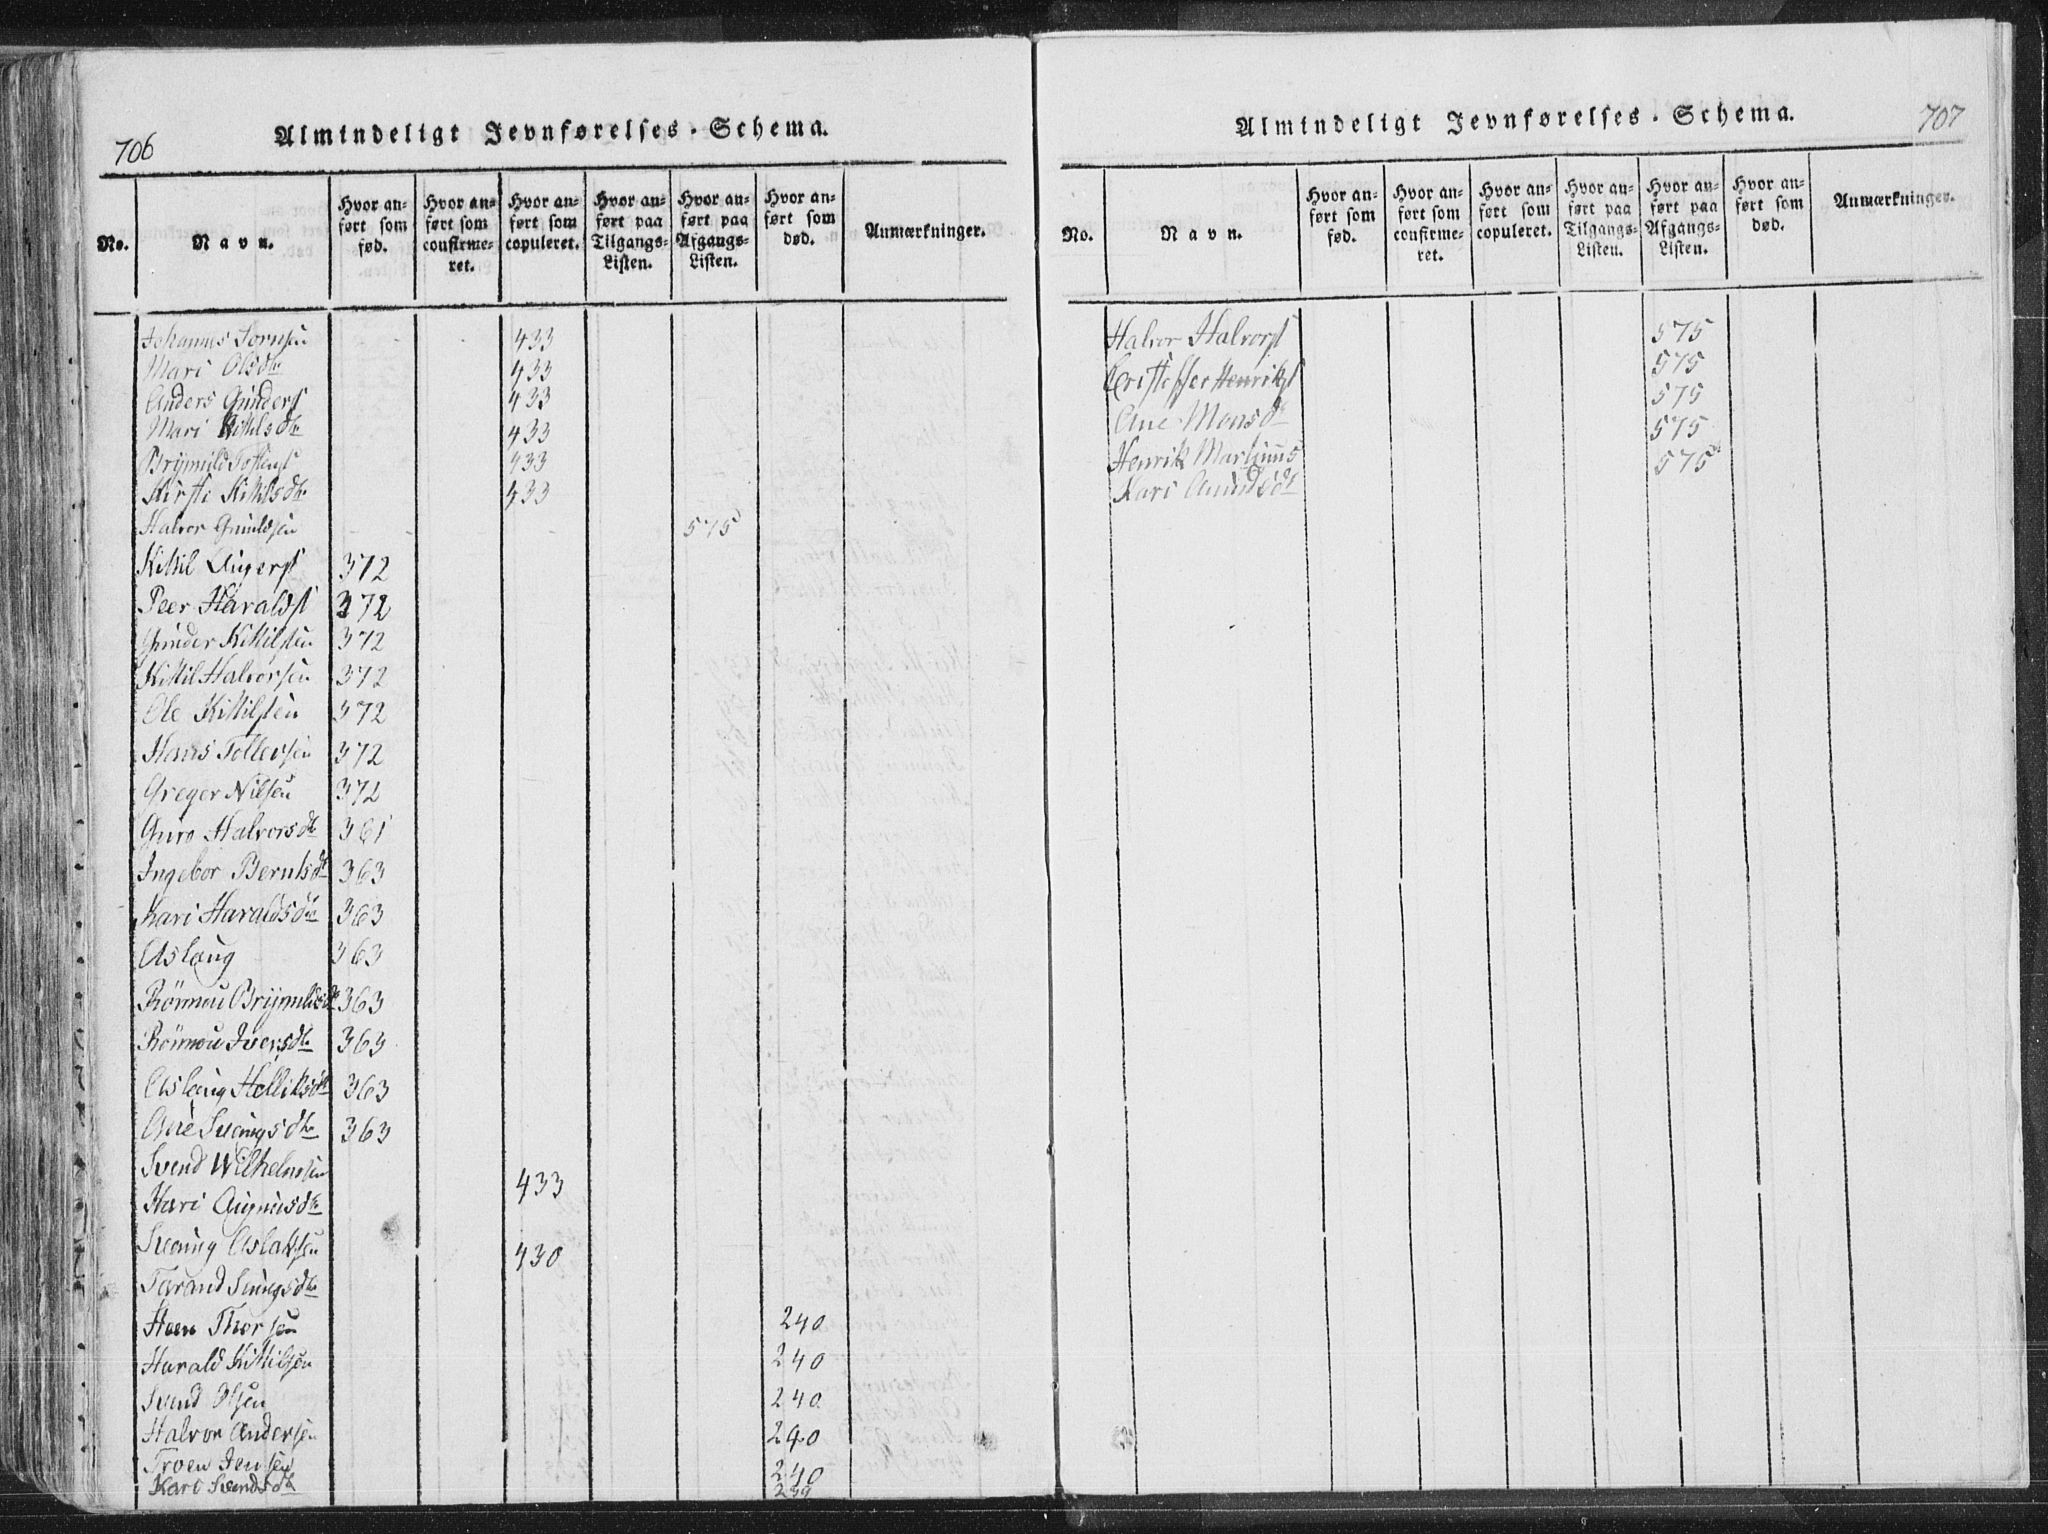 706
Almindeligt Jevnførelses-Schema.
No.
Navn.
Hvor anført som fød.
Hvor anført som confirmeret.
Hvor anført som copuleret.
Hvor anført paa Tilgangs-Listen.
Hvor anført paa Afgangs-Listen.
Hvor anført som død.
Anmærkninger.
433
Mari Olsdtr 433
Anders Gunders 433
Mari Kittilsdtr 433
433
Kirsti Kittilsdtr 433
Halvor 575
Kittil 372
Peer Haralds 372
Gunder Kittilsen 372
Kittil Halvorsen 372
Ole Kittilsen 372
Hans Tollevsen 372
Greger Nilsen 372
Guro Halvorsdtr 361
Ingebor Berntsdtr 363
Kari Haraldsdtr 363
Aslaug 363
Rönnou Brynnildsdtr 363
Rönnou Iversdtr 363
Aslaug Helliksdtr 363
Ane 363
Svend Wilhelmsen
433
Kari
Aslaksen 430
Harald Kittilsen 240
240
Svend Olsen 240
Halvor Andersen 240
Troen Jensen 240
Kari Svendsdtr
707
Almindeligt Jevnførelses-Schema.
No.
Navn.
Hvor anført som fød.
Hvor anført som confirmeret.
Hvor anført som copuleret.
Hvor anført paa Tilgangs-Listen.
Hvor anført paa Afgangs-Listen.
Hvor anført som død.
Anmærkninger.
Halvor Halvors 575
Cristoffer Henriks 575
Ane Monsdr 575
Henrik Martinus 575
Kari Amundsdt 575